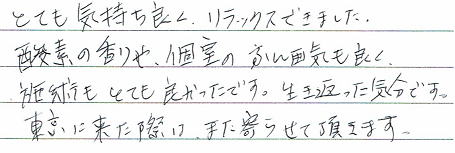 とても気持ち良く、リラックスできました。
酵素の香りや、個室のふん囲気も良く、
施術もとても良かったです。生き返った気分です。
東京に来た際は、また寄らせて頂きます。